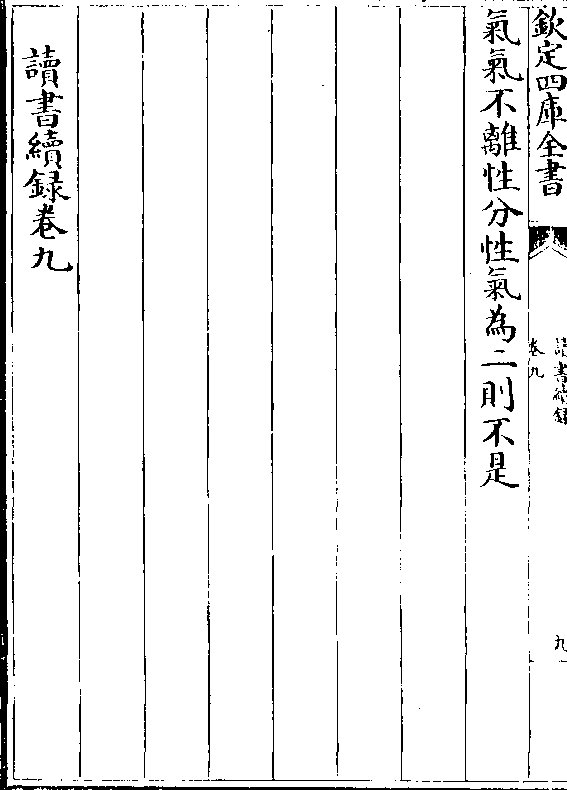 欽定四庫全書
讀書續錄
卷九
九
氣氣不離性分性氣為二則不是
讀書續錄卷九